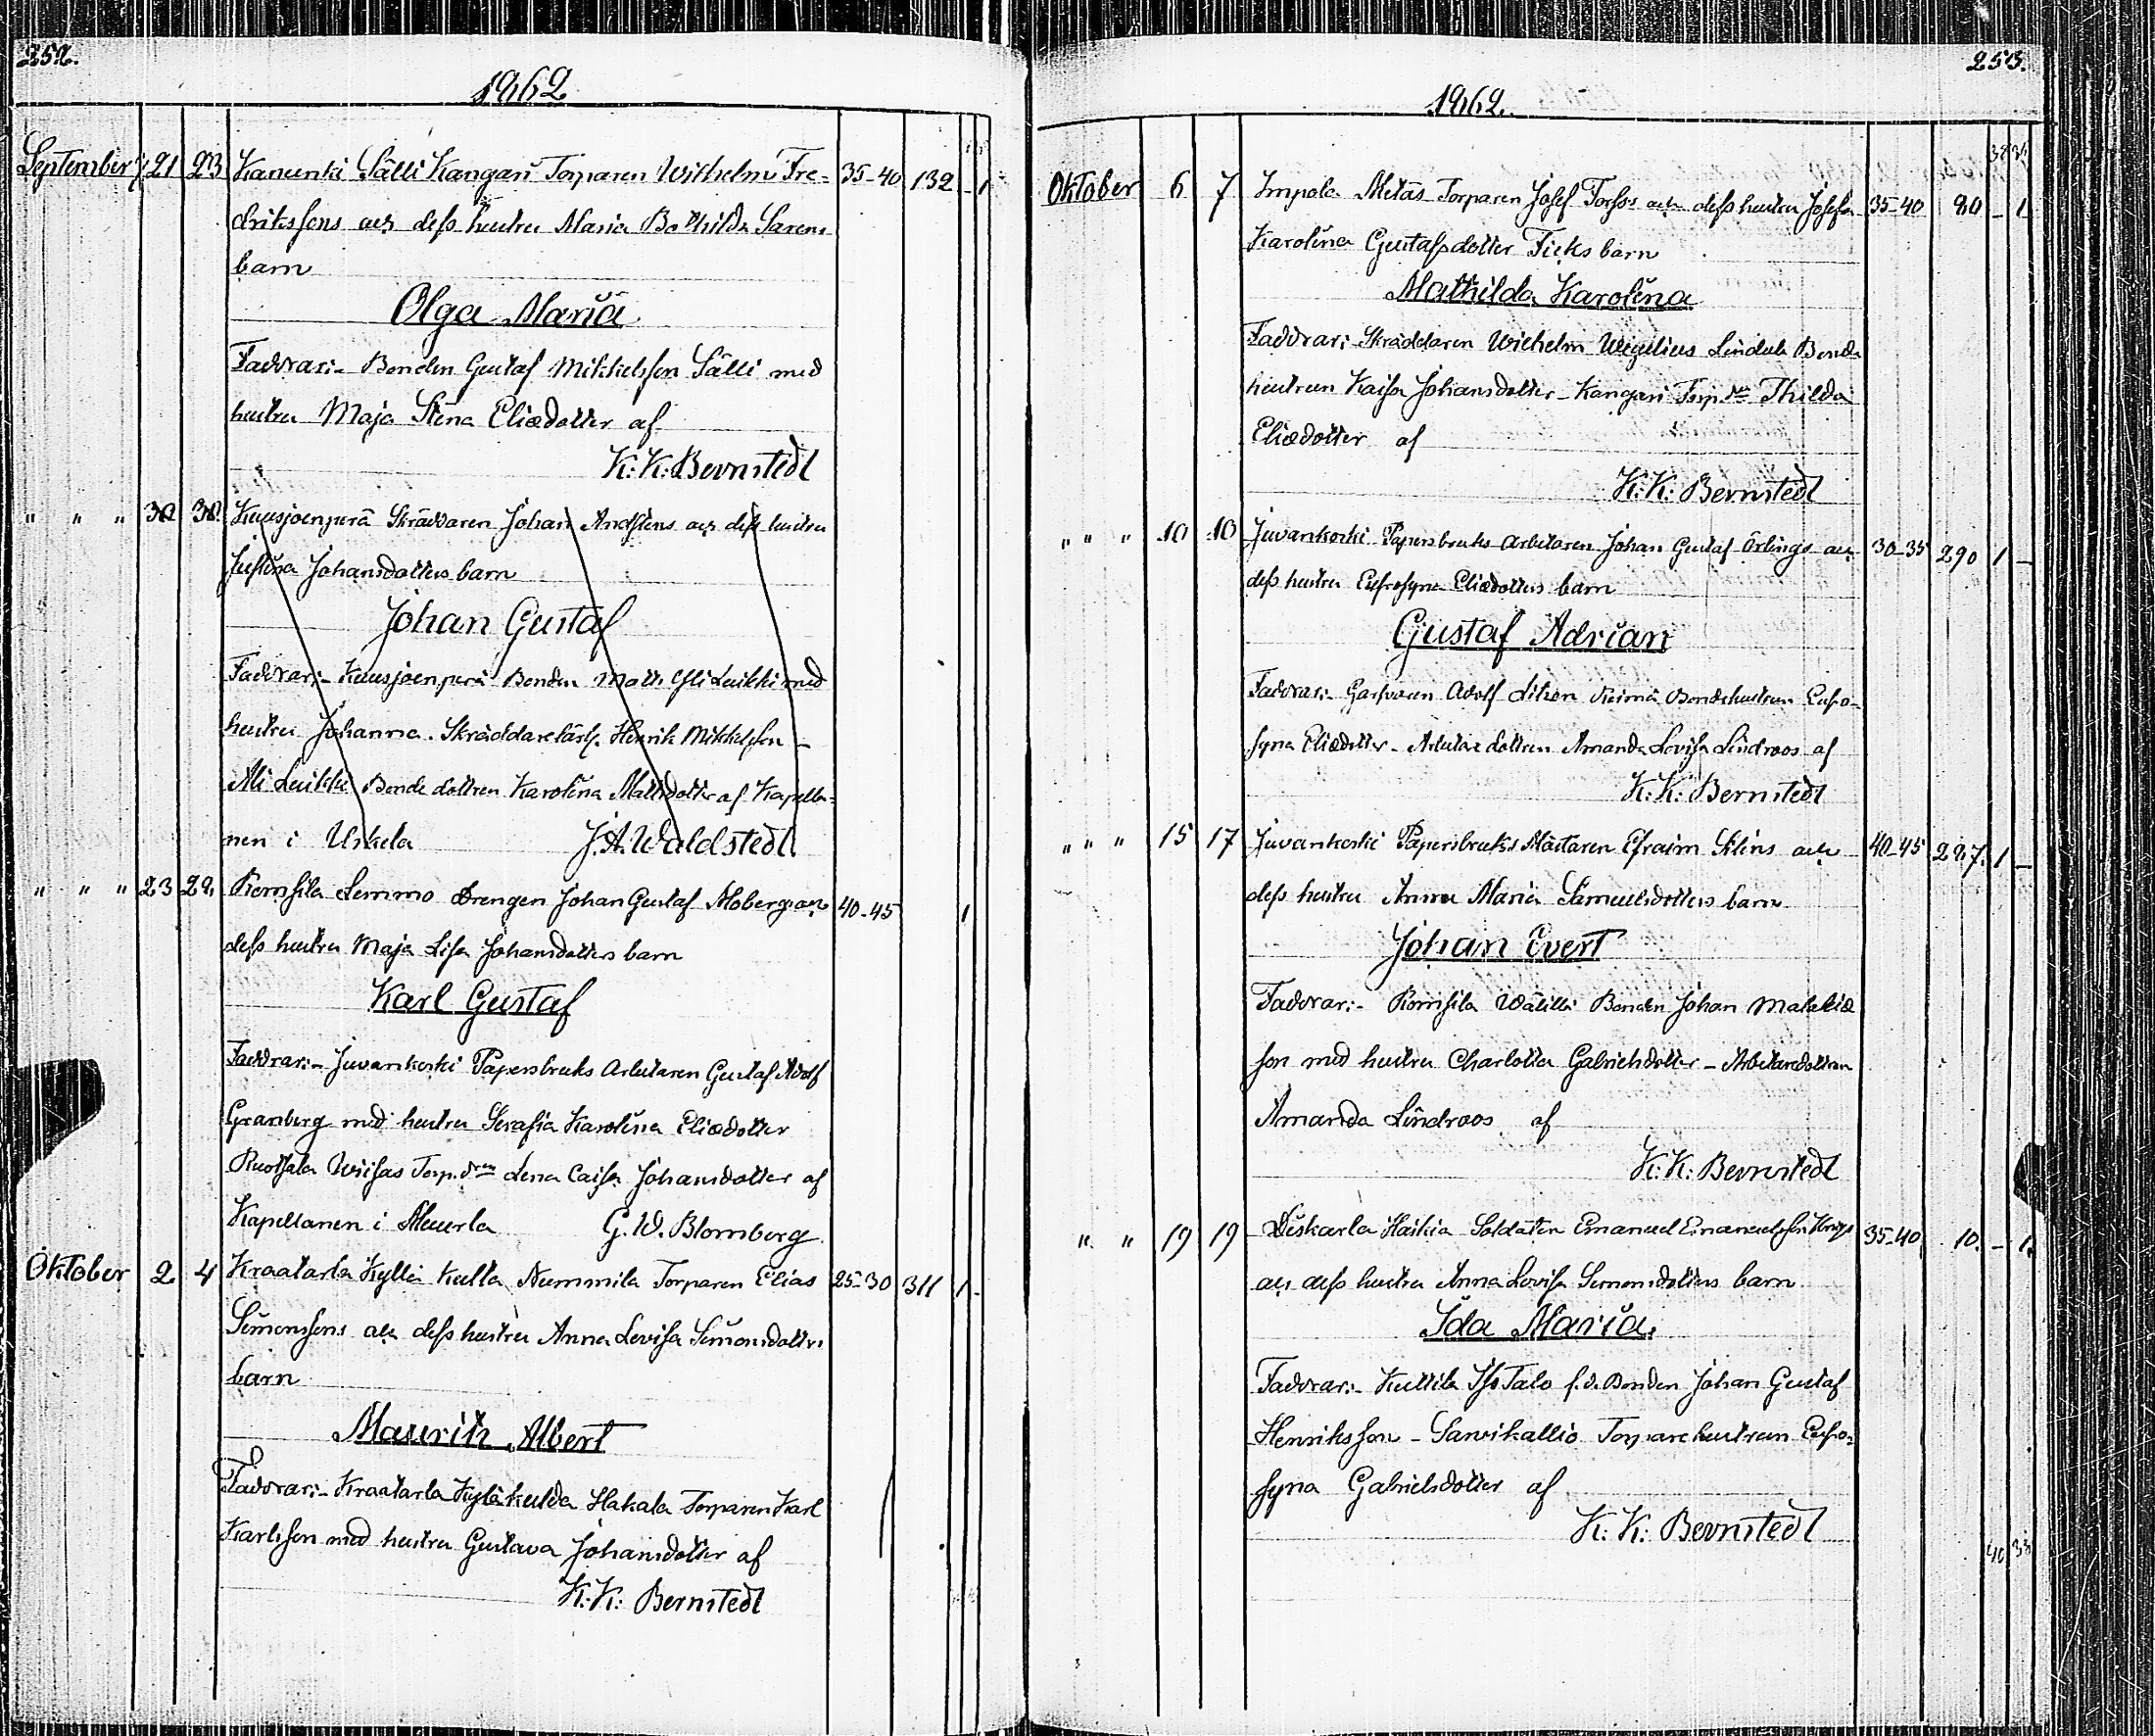 252.
1862
September 21 23 Kanunki Sälli Kangari Torparen Wilhelm Fre- 35-40 132 - 1
drikssons och dess hustru Maria Bathilda Sarens
barn
Olga Maria
Faddrar:- Bonden Gustaf Mikkelsson Sälli med
hustru Maja Stina Eliædotter af
K: K: Bernstedt
" " " 30 30 Kuusjoenperä Skräddaren Johan Andsténs och dess hustru
Justina Johansdotters barn
Johan Gustaf
Faddrar:- Kuusjoenperä Bonden Matts Yli Luikki med
hustru Johanna. Skräddarelärl. Henrik Mikkelsson -
Ali Luikki Bonde dottren Karolina Mattsdotter af Kapella-
nen i Uskela J. A. Waldstedt.
" " " 23 28 Romsila Lemmo Drengen Johan Gustaf Moberg och 40-45 1
dess hustru Maja Lisa Johansdotters barn
Karl Gustaf
Faddrar:- Juvankoski Papersbruks Arbetaren Gustaf Adolf
Granberg med hustru Serafia Karolina Eliædotter
Ruotsala Torp.drn Lena Caisa Johansdotter af
Kapellanen i Muurla G. W. Blomberg
Oktober 2 4 Kraatarla Kyllä Kulla Nummila Torparen Elias 25-30 311 1 -
Simonssons och dess hustru Anna Lovisa Simonsdotters
barn
Mauritz Albert
Faddrar:- Kraatarla Kyläkulda Hakala Torparen Karl
Karlsson med hustru Gustava Johansdotter af
K: K: Bernstedt
253.
1862.
Oktober 6 7 Impola Metäs Torparen Josef Torfss och dess hustru Josefa 35-40 80 - 1
Karolina Gustafsdotter Ficks barn
Mathilda Karolina
Faddrar:- Skräddaren Wilhelm Wigelius Lindula Bonde
hustrun Kaisa Johansdotter - Kangari Torp.drn Thilda
Eliædotter af
K: K: Bernstedt
" " " 10 10 Juvankoski Papersbruks Arbetaren Johan Gustaf Örlings och 30-35 290 1 -
dess hustru Eufrosyna Eliædotters barn
Gustaf Adrian
Faddrar:- Garfvaren Adolf Litzen Bondehustrun Eufro-
syna Eliædotter - Arbetare dottren Amanda Lovisa Lindroos af
K: K: Bernstedt
" " " 15 17 Juvankoski Papersbruks Mästaren Efraim Siléns och 40-45 287. 1 -
dess hustru Anna Maria Samuelsdotters barn
Johan Evert
Faddrar:- Romsila Wälilli Bonden Johan Malakiæ
son med hustru Charlotta Gabrielsdotter - Arbetaredottren
Amanda Lindroos af
K: K: Bernstedt
" " 19 19 Diskarla Haikia Soldaten Emanuel Emanuelsson 35-40 10. - 1.
och dess hustru Anna Lovisa Simonsdotters barn
Ida Maria.
Faddrar:- Kuttila Iso Talo f. d. Bonden Johan Gustaf
Henriksson - Sarvikallio Torpare hustrun Eufro-
syna Gabrielsdotter af
K: K: Bernstedt
40 38